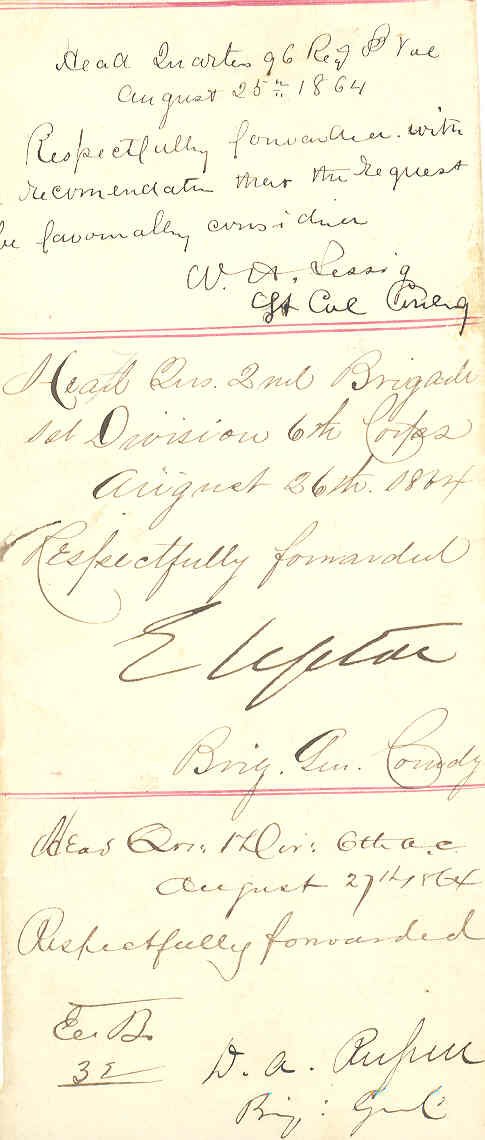 Head Quarters 96 Reg P Vol
August 25th 1864
Respectfully forwarded with
recomendation that the request
be favorably considered
W. H. Lessig
Lt Col Comdg
Head Qrs. 2nd Brigade
1st Division 6th Corps
August 26th. 1864
Respectfully forwarded
E Upton
Brig. Gen. Comdg
Head Qrs: 1st Div: 6th A.C
August 27th 1864
Respectfully forwarded
E. B.
32
D. A. Russell
Brig: Genl